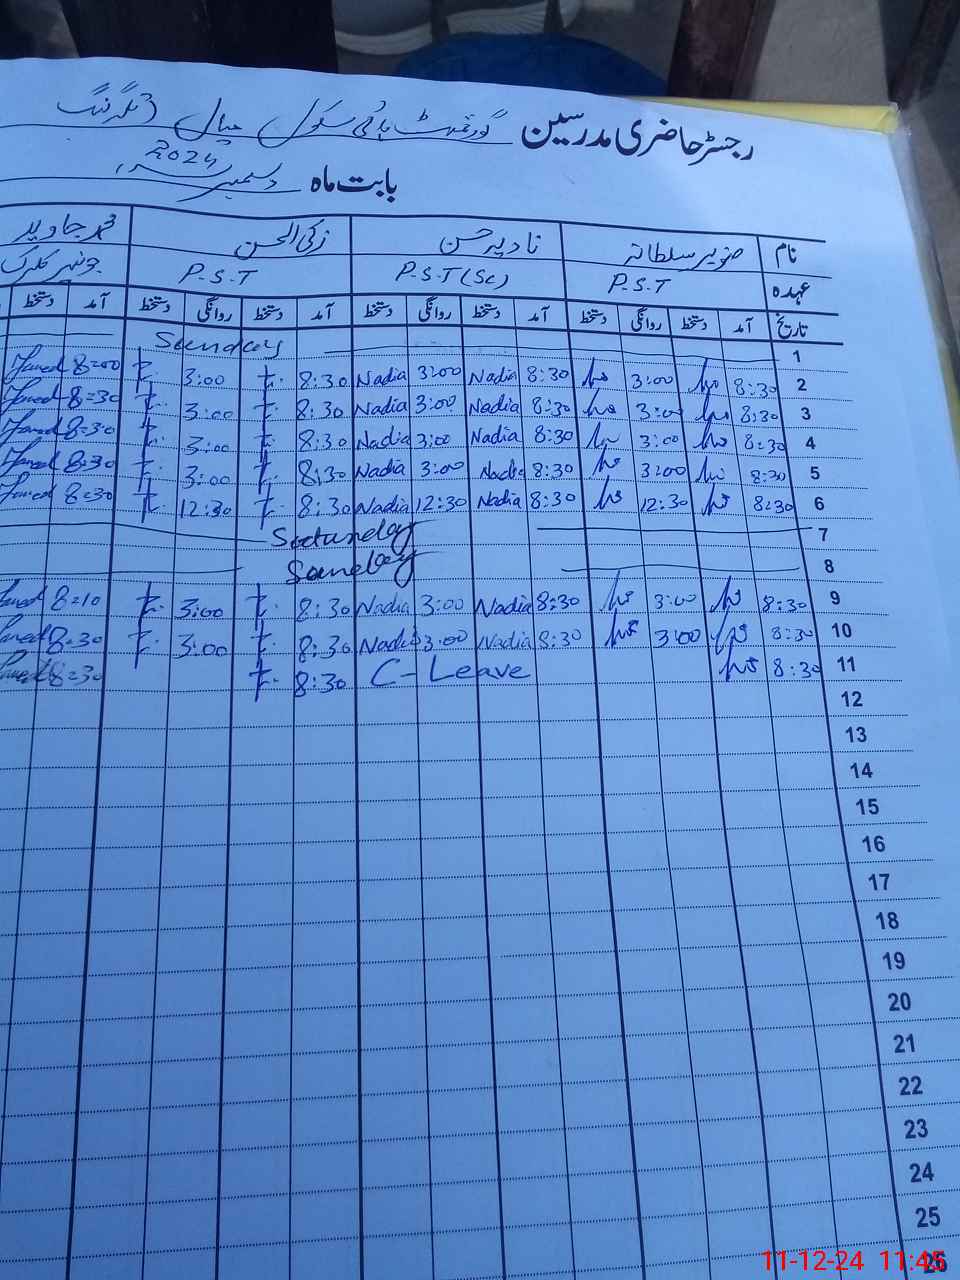 رجسٹر حاضری مدرسین گورنمنٹ ہائی سکول
بابت ماہ دسمبر 2024
نام صنوبر سلطانہ نادیہ حسن زکی الحسن محمد جاوید
عہدہ P.S.T P.S.T (Sc) P.S.T جونیر کلرک
تاریخ آمد دستخط روانگی دستخط آمد دستخط روانگی دستخط آمد دستخط روانگی دستخط آمد دستخط
1 Sunday
2 8:30 3:00 8:30 Nadia 3:00 Nadia 8:30 3:00 8=00 Javed
3 8:30 3:00 8:30 Nadia 3:00 Nadia 8:30 3:00 8=30 Javed
4 8:30 3:00 8:30 Nadia 3:00 Nadia 8:30 3:00 8=30 Javed
5 8:30 3:00 8:30 Nadia 3:00 Nadia 8:30 3:00 8=30 Javed
6 8:30 12:30 8:30 Nadia 12:30 Nadia 8:30 12:30 8=30 Javed
7 Saturday
8 Sunday
9 8:30 3:00 8:30 Nadia 3:00 Nadia 8:30 3:00 8=10
10 8:30 3:00 8:30 Nadia 3:00 Nadia 8:30 3:00 8=30
11 8:30 C-Leave 8:30 8=30
12
13
14
15
16
17
18
19
20
21
22
23
24
25
26
11-12-24 11:45